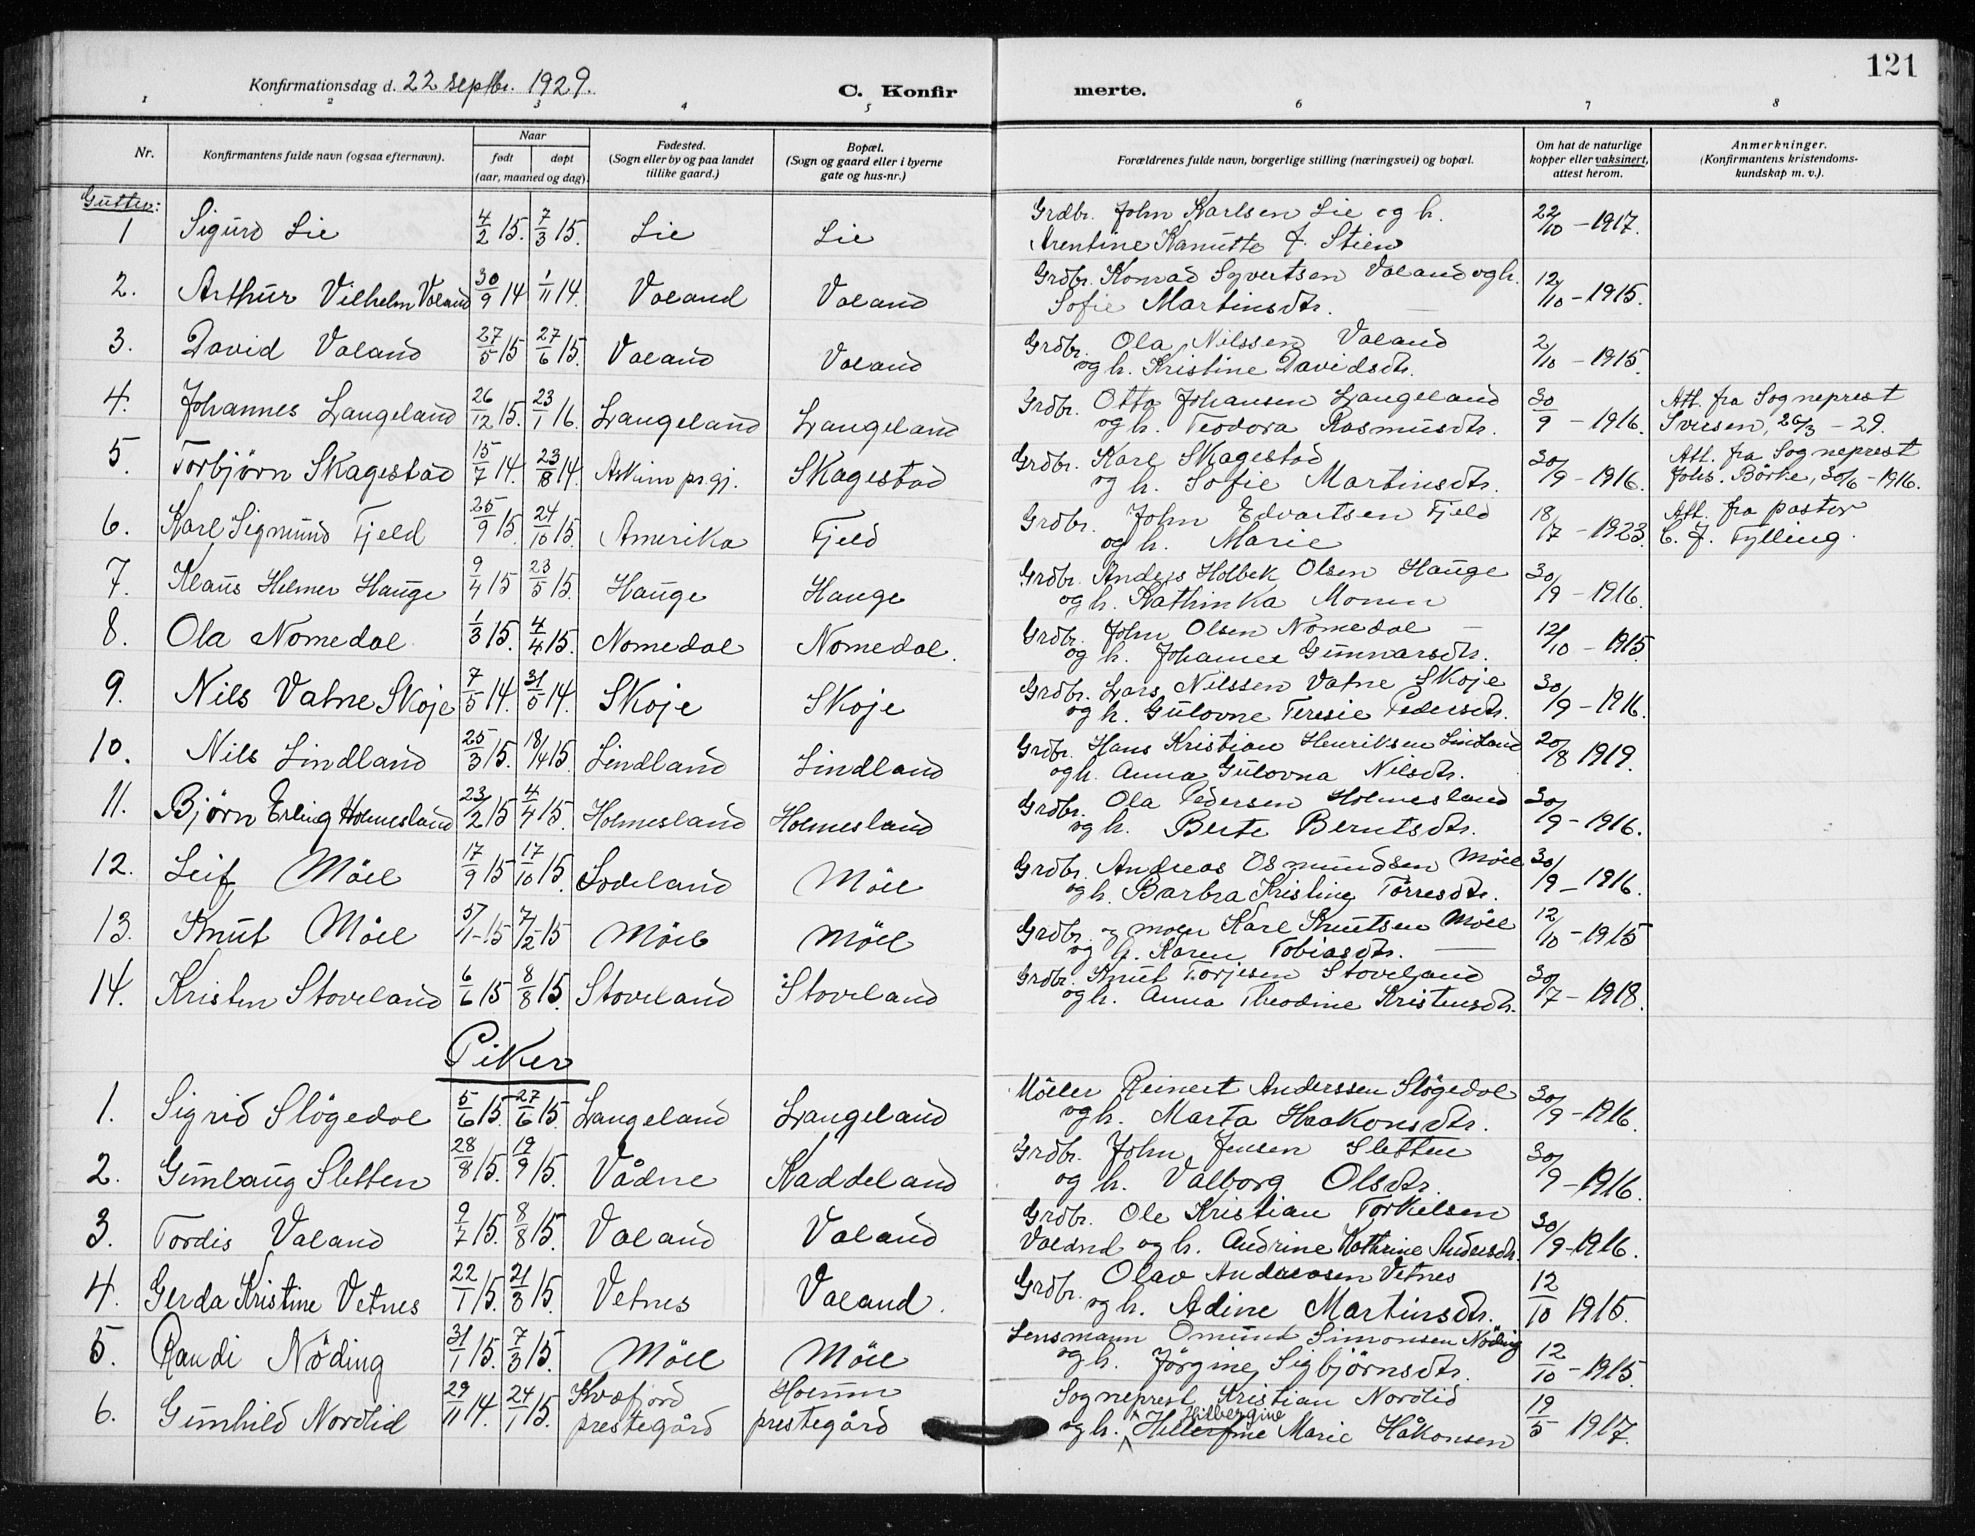 121
Konfirmationsdag d. 22 septbr. 1929. C. Konfirmerte.
1 2 3 4 5 6 7 8
Nr. Konfirmantens fulde navn (ogsaa efternavn). Naar født døpt (aar, maaned og dag). Fødested. (Sogn eller by og paa landet tillike gaard.) Bopæl. (Sogn og gaard eller i byerne gate og hus-nr.) Forældrenes fulde navn, borgerlige stilling (næringsvei) og bopæl. Om hat de naturlige kopper eller vaksinert, attest herom. Anmerkninger. (Konfirmantens kristendomskundskap m. v.).
Gutter:
1 Sigurd Lie 4/2 15. 7/3 15. Lie Lie Grdbr. John Karlsen Lie og h. 22/10 - 1917.
Arentine Kanutte f. Stien
2. Arthur Vilhelm Valand 30/9 14 1/11 14. Valand Valand Grdbr. Konrad Syvertsen Valand og h. 12/10 - 1915.
Sofie Martinsdtr.
3. David Valand 27/5 15 27/6 15. Valand Valand Grdbr. Ola Nilssen Valand 2/10 - 1915.
og h. Kristine Davidsdtr.
4. Johannes Langeland 26/12 15. 23/1 16. Langeland Langeland Grdbr. Otto Johansen Langeland 30/9 - 1916. Att. fra Sogneprest
og h. Teodora Rasmusdtr. 26/3 - 29.
5. Torbjørn Skagestad 15/7 14. 23/8 14. Askim pr.gj. Skagestad Grdbr. Karl Skagestad 30/9 - 1916. Att. fra Sogneprest
og h. Sofie Martinsdtr. Johs. Börke, 30/6 - 1916.
6. Karl Sigmund Fjeld 25/9 15. 24/10 15. Amerika Fjeld Grdbr. John Edvartsen Fjeld 18/7 - 1923. Att. fra pastor
og h. Marie C. J. Fylling.
7. Klaus Helmer Hauge 9/4 15 23/5 15. Hauge Hauge Grdbr. Anders Holbek Olsen Hauge 30/9 - 1916.
og h. Kathinka Monen
8. Ola Nomedal 1/3 15. 4/4 15. Nomedal Nomedal. Grdbr. John Olsen Nomedal 12/10 - 1915.
og h. Johanne Gunnarsdtr.
9. Nils Vatne Skoje 7/5 14. 31/5 14. Skoje Skoje Grdbr. Lars Nilssen Vatne Skoje 30/9 - 1916.
og h. Gulovne Teresie Pedersdtr.
10. Nils Lindland 25/3 15. 18/4 15. Lindland Lindland Grdbr. Hans Kristian Henriksen Lindland 20/8 1919.
og h. Anna Gulovna Nilsdtr.
11. Bjørn Erling Holmesland 23/2 15 4/4 15. Holmesland Holmesland Grdbr. Ola Pedersen Holmesland 30/9 - 1916.
og h. Berte Berntsdtr.
12. Leif Möll 17/9 15 17/10 15. Lodeland Möll Grdbr. Andreas Osmundsen Möll 30/9 - 1916.
og h. Barbra Kristine Törresdtr.
13. Knut Möll 5/1 - 15 7/2 - 15 Möll Möll Grdbr. Karl Knutsen Möll 12/10 - 1915
og h. Karen Tobiasdtr.
14. Kristen Stoveland 6/6 15 8/8 15. Stoveland Stoveland Grdbr. Knut Torjesen Stoveland 30/7 - 1918.
og h. Anna Theodine Kristensdtr.
Piker
1. Sigrid Slögedal 5/6 15. 27/6 15. Langeland Langeland Möller Reinert Anderssen Slögedal 30/9 - 1916.
og h. Marta Haakonsdtr.
2. Gunlaug Sletten 28/8 15. 19/9 15. Vådne Kaddeland Grdbr. John Jensen Sletten 30/9 - 1916.
og h. Valborg Olsdtr.
3. Tordis Valand 9/7 15. 8/8 15. Valand Valand Grdbr. Ole Kristian Torkelsen 30/9 - 1916.
Valand og h. Andrine Kathrine Andersdtr.
4. Gerda Kristine Vetnes 22/1 15. 21/3 15. Vetnes Valand. Grdbr. Olav Andreasen Vetnes 12/10 1915.
og h. Adine Martinsdtr.
5. Randi Nöding 31/1 15. 7/3 15. Möll Möll Lensmann Omund Simonsen Nöding 12/10 - 1915.
og h. Jörgine Sigbjörnsdtr.
6. Gunhild Nordlid 29/11 14. 24/1 15. Kvæfjord prestegård Holum prestegård Sogneprest Kristian Nordlid 19/5 1917.
og h. Hilbergine Marie Håkonsen